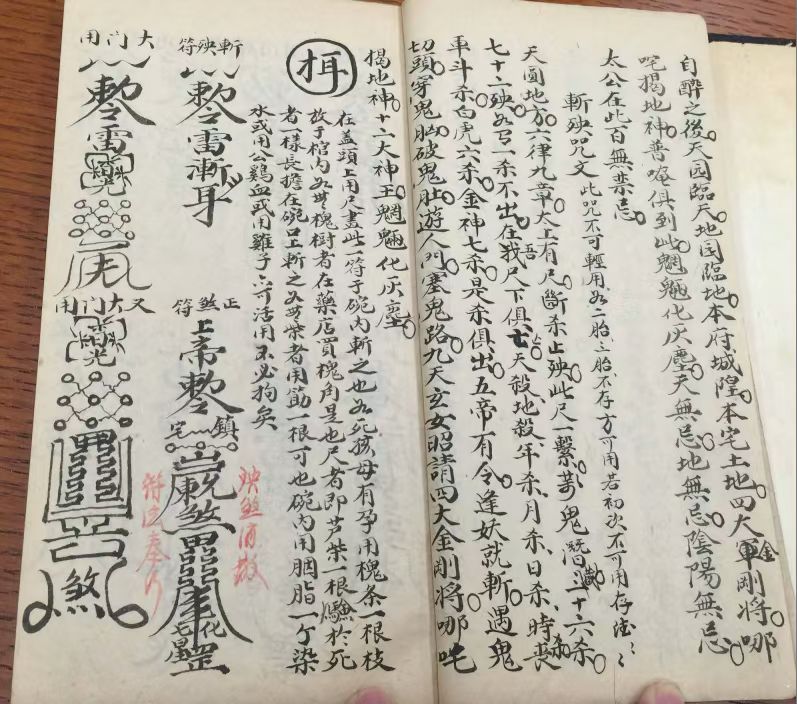 自醉之後天园臨天地园臨地本府城隍本宅土地四大金剛將哪
吒揭地神普唵俱到此魍魎化灰塵天無忌地無忌陰陽無忌
太公在此百無禁忌
斬殃咒文此咒不可輕用如二胎三胎不存方可用若初次不可用存德
天圓地方六律九章太上有尺斷杀止殃此尺一繫萬鬼潛藏三十六杀
七十二殃如吾一杀不出在我尺下俱亡天殺地殺年杀月杀日杀時杀喪
車斗杀白虎六杀金神七杀是杀俱出五帝有令逢妖就斬遇鬼
切頭穿鬼胸破鬼肚遊人門塞鬼路九天玄女昭請四大金剛將哪吒
揭地神十二大神王魍魎化灰塵
在盖頭上用尺畫此一符于碗內斬之也如死孩母有孕用槐条一根枝
放于棺內如無槐樹者在藥店買槐角是也尺者即芦柴一根驗於死
者一樣長擔在碗口上斬之如無柴者用筯一根可也碗內用胭脂一个染
水或用公鷄血或用雞子六可活用不必拘矣
斬殃符
敕令雷漸耳
正煞符
上帝敕令
鎮宅
煞
化
七星
罡
殃煞消散
符過奉行
大門用
敕令雷
又大門用
光
煞